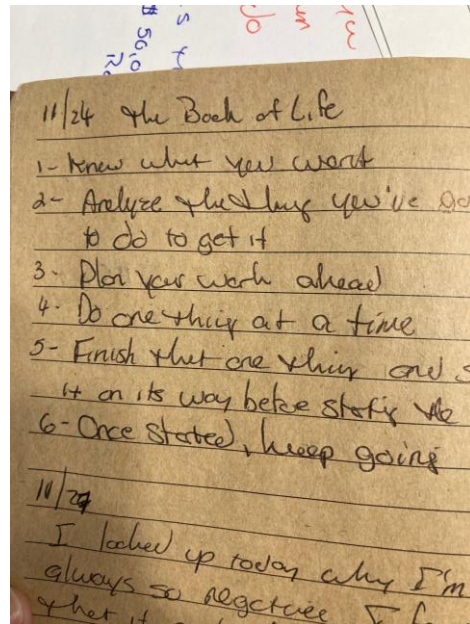 11/24 The Book of Life
1- Know what you want
2- Analyze the thing you've go
to do to get it
3- Plan your work ahead
4- Do one thing at a time
5- Finish that one thing and s
it on its way before starting the
6- Once started, keep going
11/27
I looked up today why I'm
always so negative I
that it